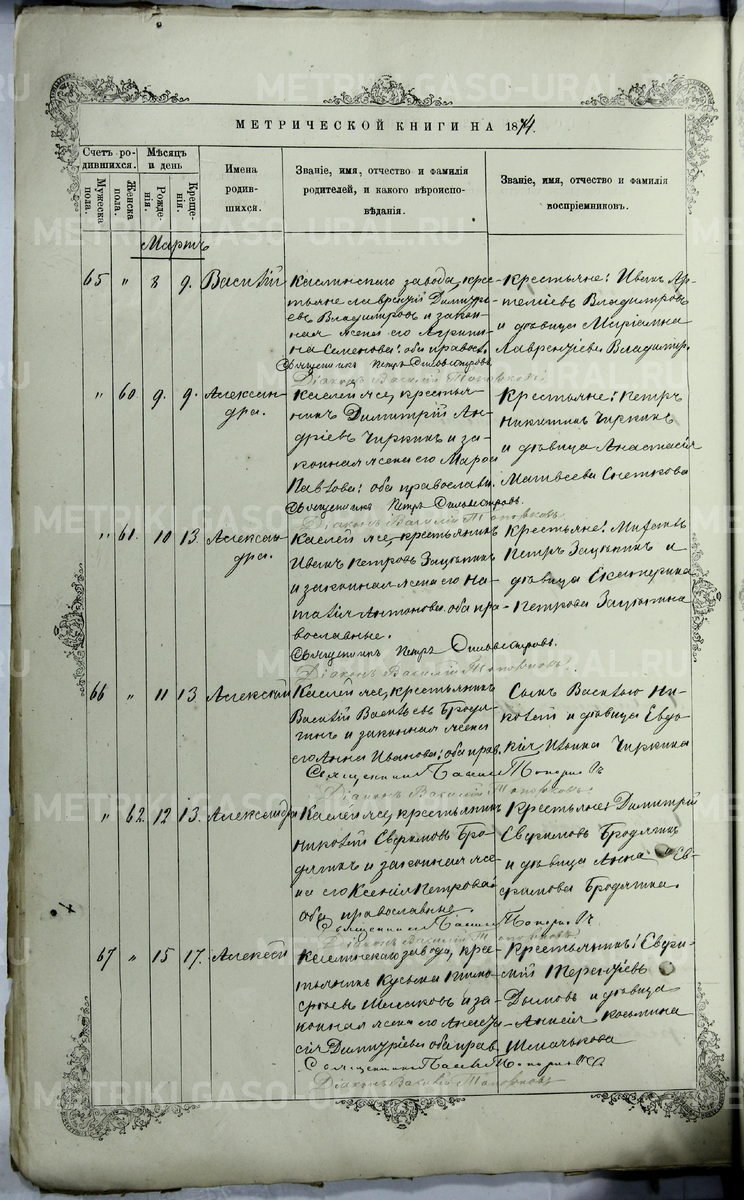 МЕТРИЧЕСКОЙ КНИГИ НА 1874.
Счетъ родившихся.
Мужеска пола.
Женска пола.
Мѣсяцъ и день
Рожденія.
Крещенія.
Имена родившихся.
Званіе, имя, отчество и фамилія родителей, и какого вѣроисповѣданія.
Званіе, имя, отчество и фамилія воспріемниковъ.
Мартъ
65 " 8 9. Василій
Каслинскаго завода, крестьяне Лаврентій Димитріевъ Владимировъ и законная жена его
Семенова: оба правосл.
Священникъ Петръ Сильвестровъ.
Діаконъ Василій Топорковъ.
Крестьяне: Иванъ Артеміевъ Владимировъ
и дѣвица Маріамна
Лаврентіева Владимир.
" 60. 9. 9. Александра.
Каслей же, крестьянинъ Димитрій Андріевъ Чиркинъ и законная жена его
Павлова: оба православн.
Священникъ Петръ Сильвестровъ.
Діаконъ Василій Топорковъ.
Крестьяне: Петръ
Никитинъ Чиркинъ
и дѣвица Анастасія
Матвѣева Снеткова
" 61. 10 13. Александра.
Каслей же, крестьянинъ
Иванъ Петровъ Зацѣпинъ
и законная жена его Наталія Антонова: оба православные.
Священникъ Петръ Сильвестровъ.
Діаконъ Василій Топорковъ.
Крестьяне: Михаилъ
Петръ Зацѣпинъ и
дѣвица Екатерина
Петрова Зацѣпина
66 " 11 13. Алексѣй
Каслей же, крестьянинъ
Василій Васильевъ Бродягинъ и законная жена
его Анна Иванова: оба прав.
Священникъ
Діаконъ Василій Топорковъ.
Сынъ Василью Николай и дѣвица Евдокія Чиркина
" 62. 12 13. Александра
Каслей же, крестьянинъ
Николай Евфимовъ Бродягинъ и законная жена его Ксенія Петрова:
оба православные
Священникъ
Діаконъ Василій Топорковъ.
Крестьяне: Димитрій
Евфимовъ Бродягинъ
и дѣвица Анна Евфимова Бродягина.
67 " 15 17. Алексѣй
Каслинскаго завода, крестьянинъ Кузьма
и законная жена его Анастасія Димитріева: оба прав.
Священникъ
Діаконъ Василій Топорковъ
Крестьянинъ: Евфимій Терентіевъ
Дымовъ и дѣвица
Анисія Косьмина
METRIKI.GASO-URAL.RU